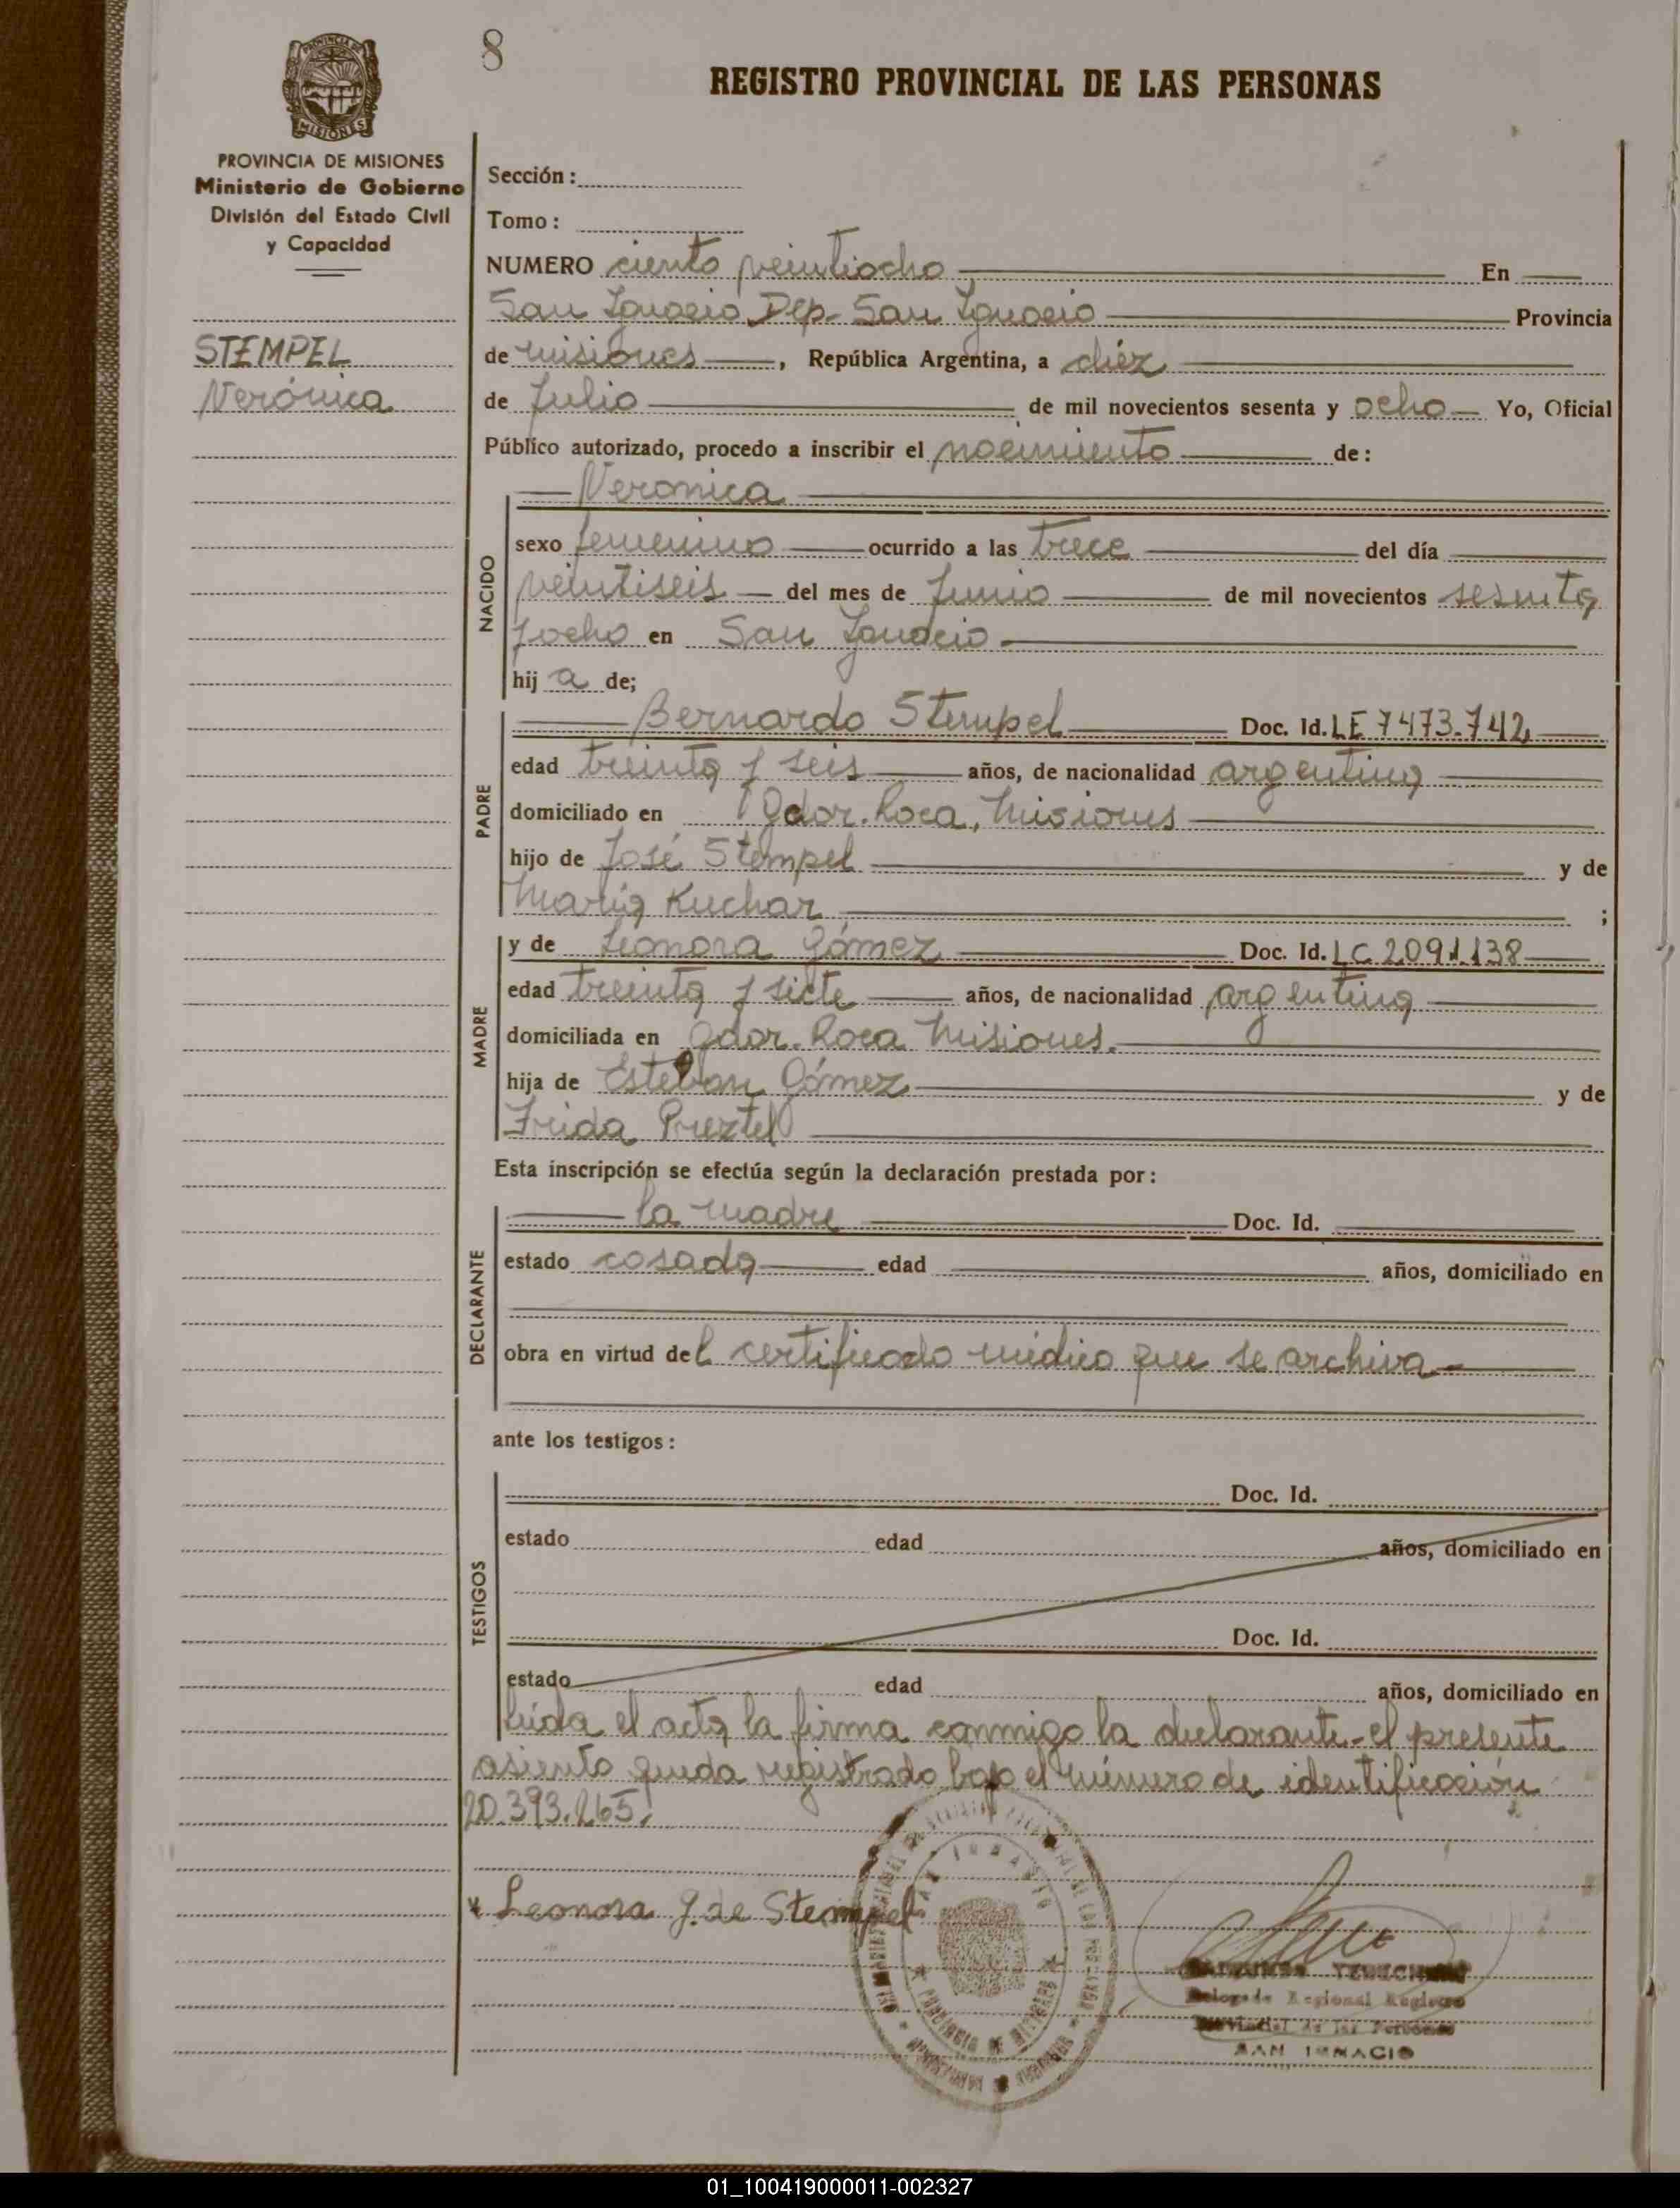 8
REGISTRO PROVINCIAL DE LAS PERSONAS
PROVINCIA DE
MISIONES
PROVINCIA DE MISIONES
Ministerio de Gobierno
División del Estado Civil
y Capacidad
STEMPEL
Verónica
Sección:
Tomo:
NUMERO ciento veintiocho En
San Ignacio Dep. San Ignacio Provincia
de misiones, República Argentina, a diéz
de Julio de mil novecientos sesenta y ocho Yo, Oficial
Público autorizado, procedo a inscribir el nacimiento de:
NACIDO
Veronica
sexo femenino ocurrido a las trece del día
veintiseis del mes de Junio de mil novecientos sesenta
y ocho en San Ignacio.
hij a de;
PADRE
Bernardo Stempel Doc. Id. LE 7473.742
edad treinta y seis años, de nacionalidad argentina
domiciliado en Gdor. Roca, Misiones
hijo de José Stempel y de
María Kuchar ;
MADRE
y de Leonora Gómez Doc. Id. LC 2091138
edad treinta y siete años, de nacionalidad argentina
domiciliada en Gdor. Roca Misiones.
hija de Esteban Gómez y de
Frida Preztel
Esta inscripción se efectúa según la declaración prestada por:
DECLARANTE
la madre Doc. Id.
estado casada edad años, domiciliado en
obra en virtud del certificado médico que se archiva.-
ante los testigos:
TESTIGOS
Doc. Id.
estado edad años, domiciliado en
Doc. Id.
estado edad años, domiciliado en
leída el acta la firma conmigo la declarante-el presente
asiento queda registrado bajo el número de identificación
20.393.265.
Leonora G. de Stempel
SAN IGNACIO
PROVINCIA DE MISIONES
Delegado Regional Registro
Provincial de las Personas
SAN IGNACIO
01_100419000011-002327